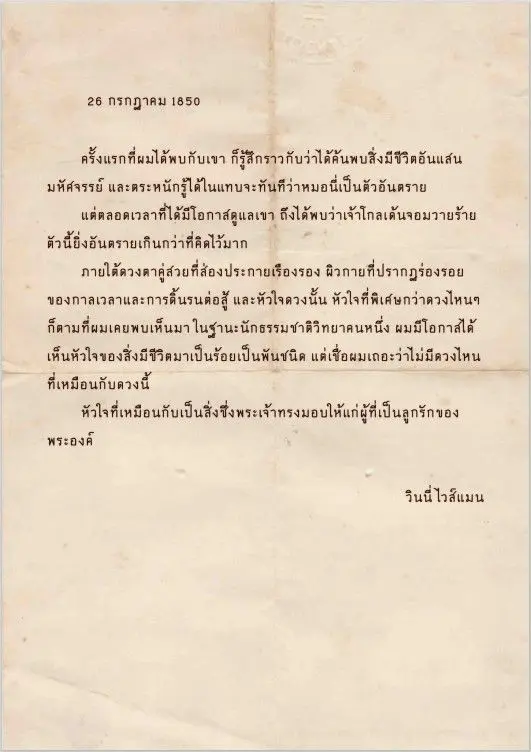 26 กรกฎาคม 1850
ครั้งแรกที่ผมได้พบกับเขา ก็รู้สึกราวกับว่าได้ค้นพบสิ่งมีชีวิตอันแสน
มหัศจรรย์ และตระหนักรู้ได้ในแทบจะทันทีว่าหมอนี่เป็นตัวอันตราย
แต่ตลอดเวลาที่ได้มีโอกาสดูแลเขา ถึงได้พบว่าเจ้าโกลเด้นจอมวายร้าย
ตัวนี้ยิ่งอันตรายเกินกว่าที่คิดไว้มาก
ภายใต้ดวงตาคู่สวยที่ส่องประกายเรืองรอง ผิวกายที่ปรากฏร่องรอย
ของกาลเวลาและการดิ้นรนต่อสู้ และหัวใจดวงนั้น หัวใจที่พิเศษกว่าดวงไหนๆ
ก็ตามที่ผมเคยพบเห็นมา ในฐานะนักธรรมชาติวิทยาคนหนึ่ง ผมมีโอกาสได้
เห็นหัวใจของสิ่งมีชีวิตมาเป็นร้อยเป็นพันชนิด แต่เชื่อผมเถอะว่าไม่มีดวงไหน
ที่เหมือนกับดวงนี้
หัวใจที่เหมือนกับเป็นสิ่งซึ่งพระเจ้าทรงมอบให้แก่ผู้ที่เป็นลูกรักของ
พระองค์
วินนี่ ไวส์แมน